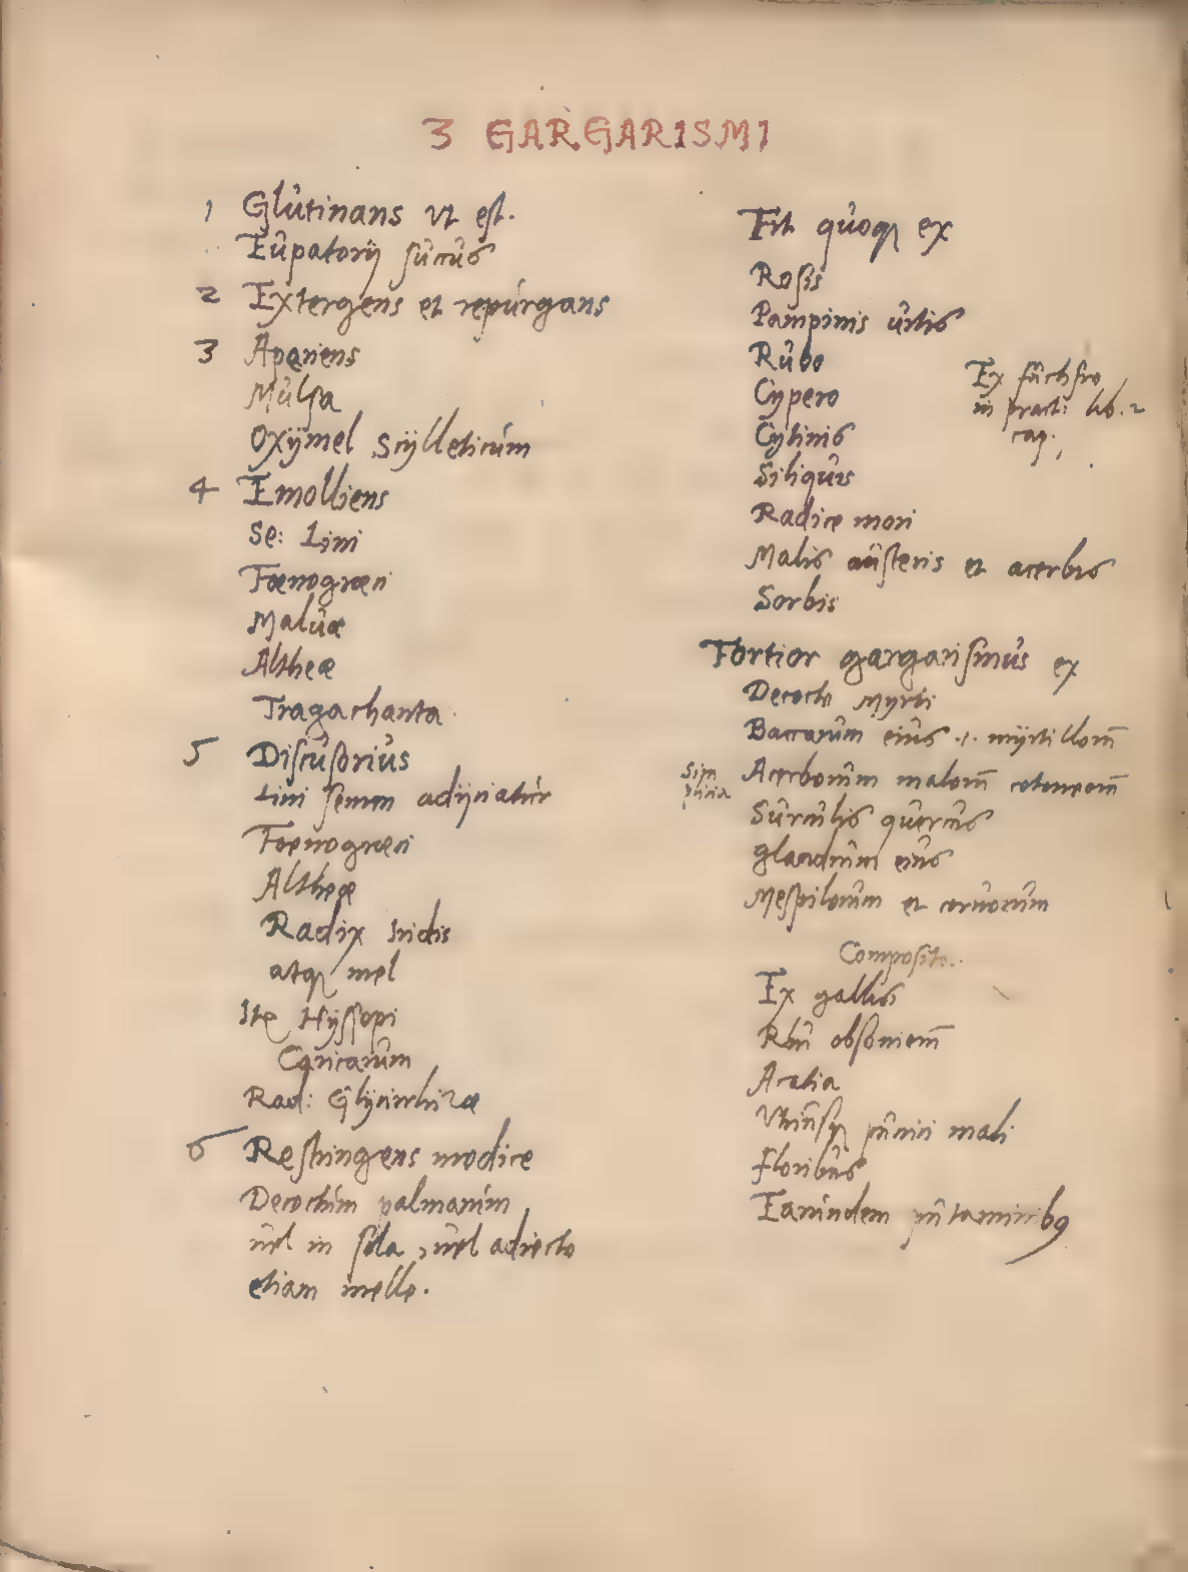 3 GARGARISMI
1 Glutinans vt est.
Eupatorij succus
2 Extergens et repurgans
3 Aperiens
Mulsa
Oxÿmel Scÿlleticum
4 Emolliens
Se: Lini
Fœnogræci
Maluæ
Altheæ
Tragachanta
5 Discusorius
Lini semen adijciatur
Foenogræci
Altheæ
Radix Iridis
atq mel
Ite Hÿssopi
Caricarum
Rad: Glÿcirrhizæ
6 Restringens modice
Decoctum palmarum
uel in sola, uel adiecto
etiam melle.
Fit quoq ex
Rosis
Pampinis uitis
Rubo
Cypero
Cytinis
Siliquis
Radice mori
Malis austeris et acerbis
Sorbis
Ex fuchsio
in pract: lib. 2
cap:
Fortior gargarismus ex
Decocto myrti
Baccarum eius .i. mÿrtillorū
Acerborum malorū cotoneorū
Sim
plicia
Surculis quercus
glandium eius
Mespilorum et cornorum
Composito.
Ex gallis
Acatia
punici mali
floribus
Earundem putaminibꝰ